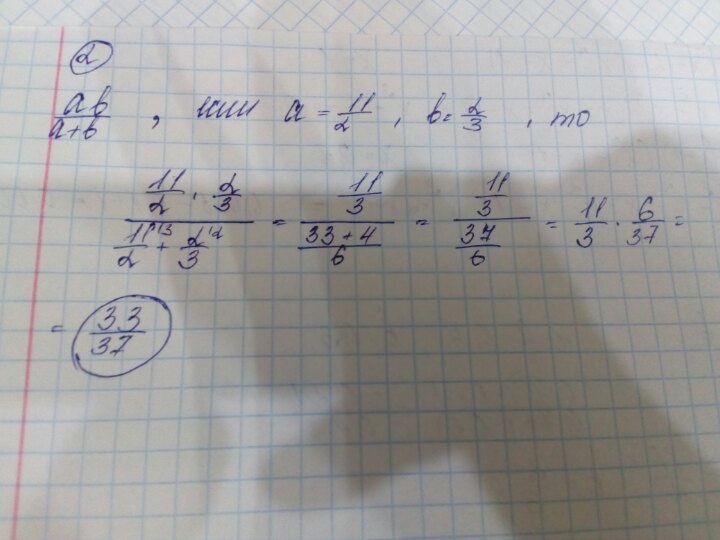 2
ab/(a+b), если a = 11/2, b = 2/3, то
(11/2 · 2/3)/(11/2 \3 + 2/3 \2) = (11/3)/((33+4)/6) = (11/3)/(37/6) = 11/3 · 6/37 =
= 33/37